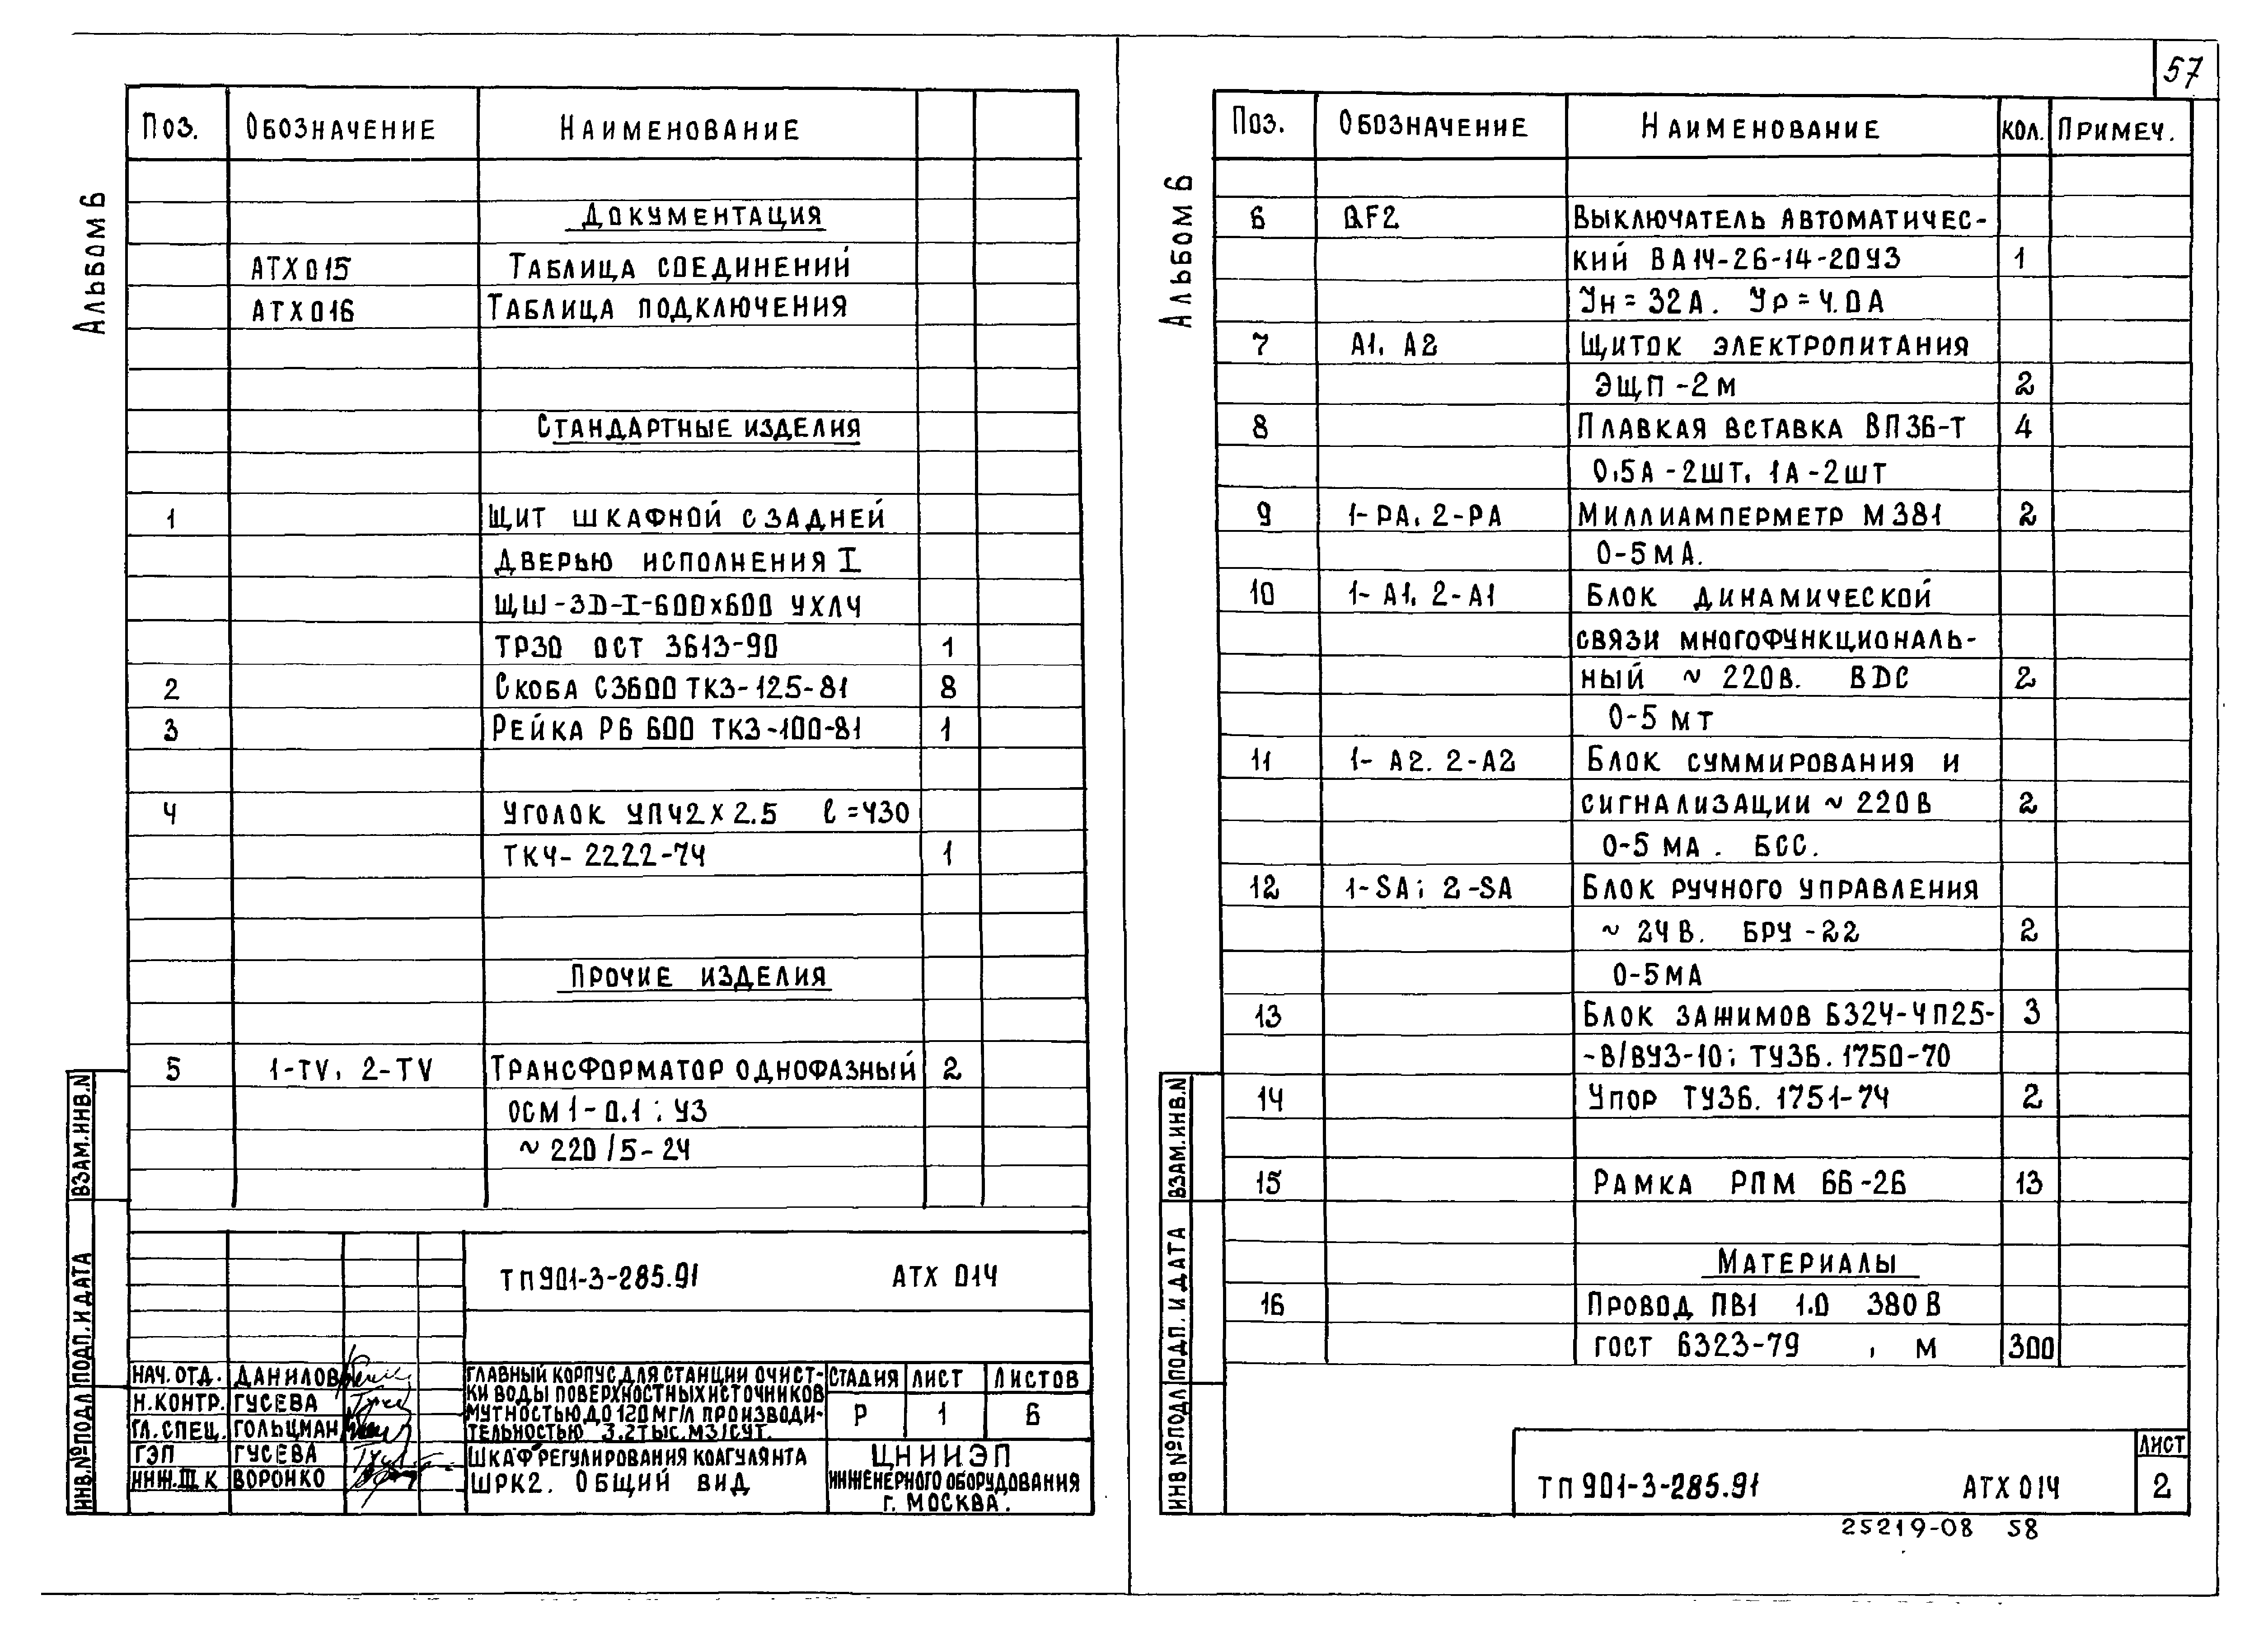 57
Альбом 6
Поз. Обозначение Наименование
Документация
АТХ 015 Таблица соединений
АТХ 016 Таблица подключения
Стандартные изделия
1 Щит шкафной с задней
дверью исполнения I
ЩШ-ЗД-I-600х600 УХЛ4
ТР30 ОСТ 3613-90 1
2 Скоба С3600 ТК3-125-81 8
3 Рейка Р6 600 ТК3-100-81 1
4 Уголок УП42х2.5 ℓ=430
ТК4-2222-74 1
Прочие изделия
5 1-TV, 2-TV Трансформатор однофазный 2
ОСМ1-0.1; У3
~220/5-24
ТП901-3-285.91 АТХ 014
Нач. отд. Данилов
Н.контр. Гусева
Гл. спец. Гольцман
ГЭП Гусева
Инж. III к Воронко
Главный корпус для станции очист-
ки воды поверхностных источников
мутностью до 120 мг/л производи-
тельностью 3.2 тыс. м3/сут.
Шкаф регулирования коагулянта
ШРК2. Общий вид
Стадия Лист Листов
Р 1 6
ЦНИИЭП
инженерного оборудования
г. Москва.
Взам. инв. N
Подп. и дата
Инв. № подл
Альбом 6
Поз. Обозначение Наименование Кол. Примеч.
6 QF2 Выключатель автоматичес-
кий ВА14-26-14-20У3 1
Ун=32А. Ур=4.0А
7 А1, А2 Щиток электропитания
ЭЩП-2м 2
8 Плавкая вставка ВП3Б-Т 4
0,5А-2шт, 1А-2шт
9 1-РА, 2-РА Миллиамперметр М381 2
0-5мА.
10 1-А1, 2-А1 Блок динамической
связи многофункциональ-
ный ~220В. BDC 2
0-5 мТ
11 1-А2. 2-А2 Блок суммирования и
сигнализации ~220В 2
0-5 мА. БСС.
12 1-SA; 2-SA Блок ручного управления
~24В. БРУ-22 2
0-5мА
13 Блок зажимов Б324-4П25- 3
-В/ВУ3-10; ТУ36. 1750-70
14 Упор ТУ36. 1751-74 2
15 Рамка РПМ 66-26 13
Материалы
16 Провод ПВ1 1.0 380В
ГОСТ 6323-79 , м 300
Взам. инв. N
Подп. и дата
Инв № подл
ТП901-3-285.91 АТХ 014
Лист
2
25219-08 58